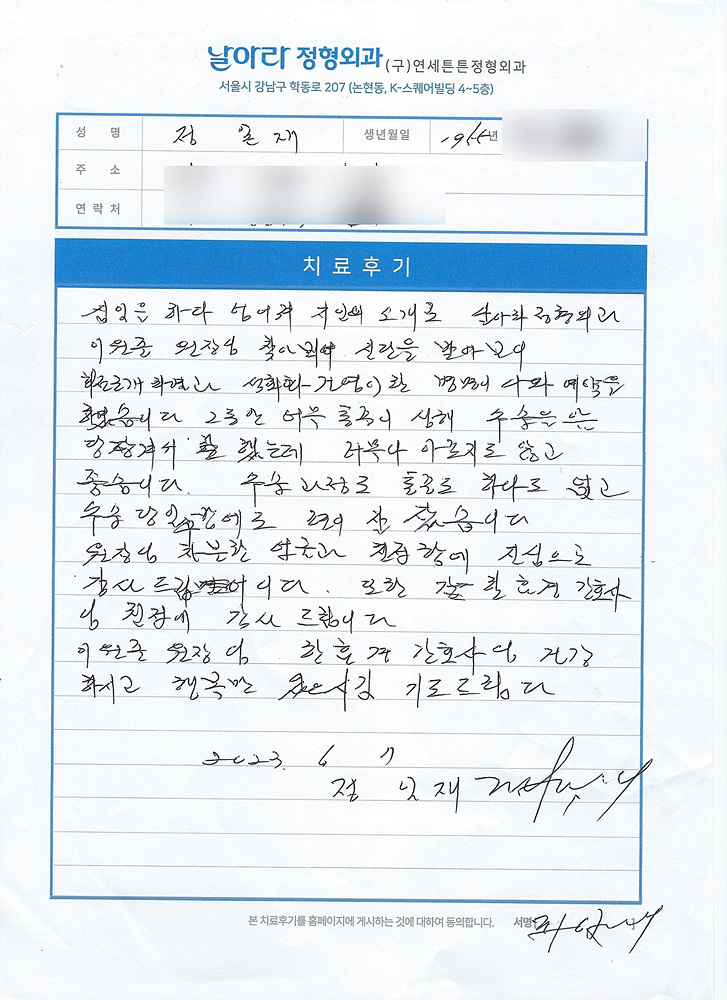 날아라 정형외과 (구)연세튼튼정형외과
서울시 강남구 학동로 207 (논현동, K-스퀘어빌딩 4~5층)
성 명 정 재 생년월일 19 년
주 소
연 락 처
치 료 후 기
집일을 하다 넘어져 지인의 소개로 날아라 정형외과
이원준 원장님 찾아 진단을 받아보니
회전근개 파열과 석회화건염이란 병명이 나와 예약을
했습니다 그동안 너무 통증이 심해 수술을
했는데 너무나 아프지도 않고
좋습니다. 수술 과정도 통증도 하나도 없고
수술 당일 밤에도 편히 잠 잤습니다
원장님 차분한 친절함에 진심으로
감사드립니다. 또한 한효경 간호사
님 친절에 감사 드립니다
이원준 원장님 한효경 간호사님 건강
하시고 행복만 기도드립니다
2023. 6 7
정 재
본 치료후기를 홈페이지에 게시하는 것에 대하여 동의합니다. 서명